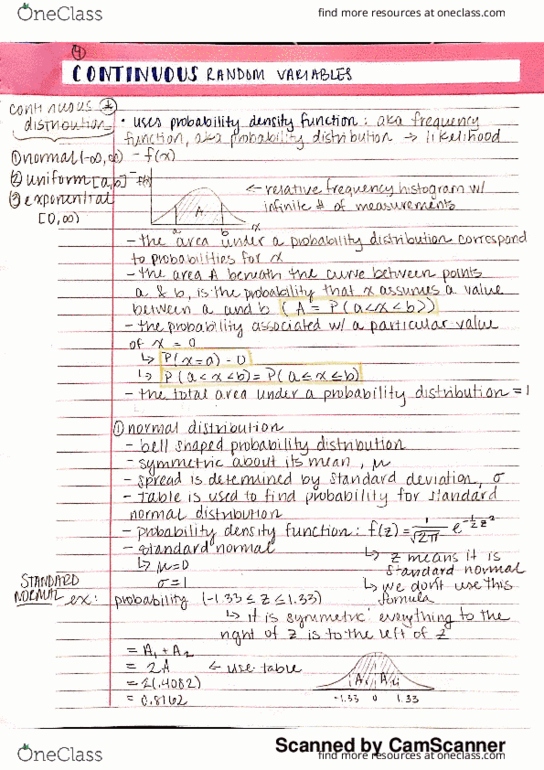 OneClass
find more resources at oneclass.com
4
CONTINUOUS RANDOM VARIABLES
continuous
distribution
① normal (-∞,∞)
② uniform [a,b]
③ exponential
[0,∞)
• uses probability density function: aka frequency
function, aka probability distribution → likelihood
- f(x)
f(x)
A
a b x
← relative frequency histogram w/
infinite # of measurements
- the area under a probability distribution correspond
to probabilities for x
- the area A beneath the curve between points
a & b, is the probability that x assumes a value
between a and b (A = P(a<x<b))
- the probability associated w/ a particular value
of x = 0
↳ P(x=a) - 0
↳ P(a<x<b) = P(a≤x≤b)
- the total area under a probability distribution = 1
① normal distribution
- bell shaped probability distribution
- symmetric about its mean, μ
- spread is determined by standard deviation, σ
- table is used to find probability for standard
normal distribution
- probability density function: f(z) = 1/√2π e^-½z²
- standard normal
↳ μ=0
σ=1
↳ z means it is
standard normal
↳ we don't use this
formula
STANDARD
NORMAL
ex: probability (-1.33 ≤ z ≤ 1.33)
↳ it is symmetric everything to the
right of z is to the left of z
= A₁ + A₂
= 2A ← use table
= 2(.4082)
= 0.8162
-1.33 0 1.33
Scanned by CamScanner
OneClass
find more resources at oneclass.com